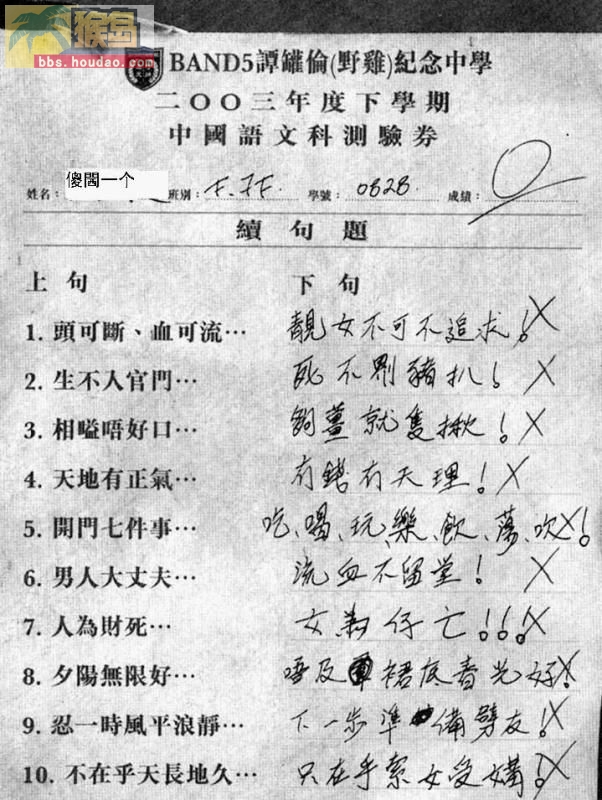 猴岛
bbs.houdao.com
BAND5譚罐倫(野雞)紀念中學
二〇〇三年度下學期
中國語文科測驗券
姓名： 傻閣一个 班別： F.7F. 學號： 0828 成績： 0
續句題
上句 下句
1. 頭可斷、血可流… 靚女不可不追求！
2. 生不入官門… 死不劏豬扒！
3. 相嗌唔好口… 夠薑就隻揪！
4. 天地有正氣… 有錢有天理！
5. 開門七件事… 吃、喝、玩、樂、飲、蕩、吹！
6. 男人大丈夫… 流血不留堂！
7. 人為財死… 女為仔亡！！！
8. 夕陽無限好… 唔及裙底春光好！
9. 忍一時風平浪靜… 下一步準備劈友！
10. 不在乎天長地久… 只在乎索女受媾！